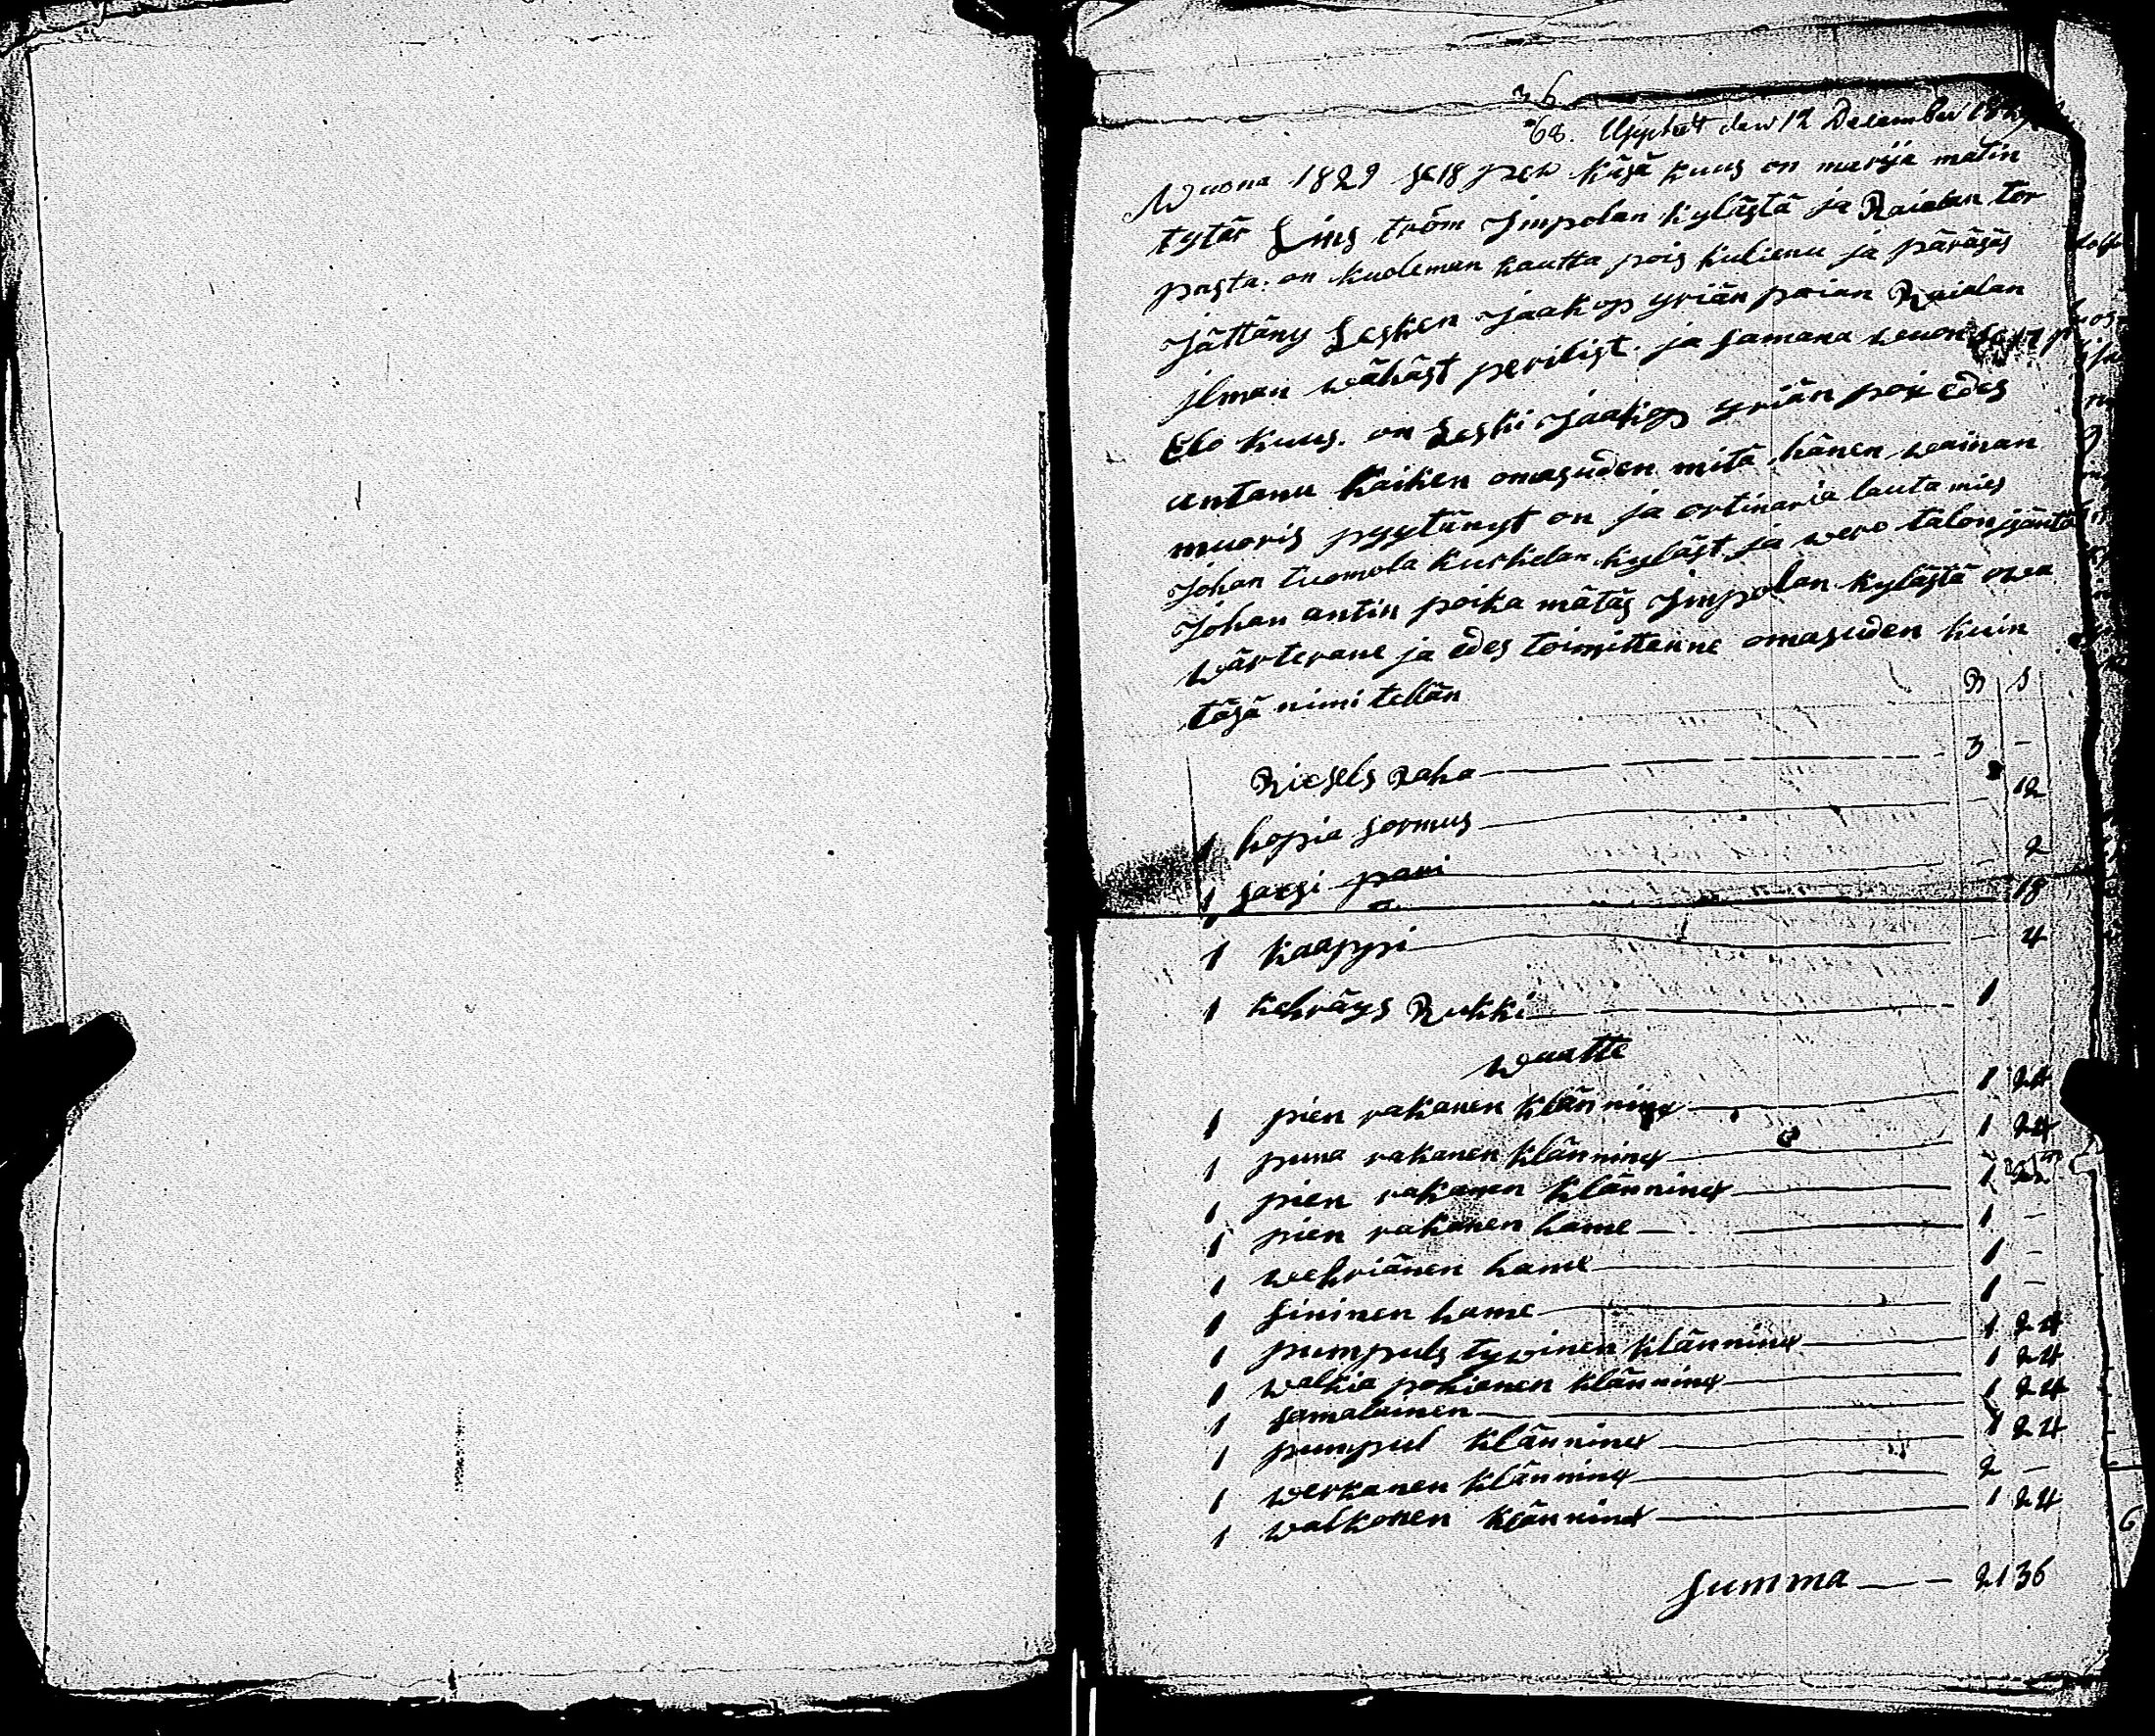 36
68. Uppt den 12 December 1829
Wuona 1829 se 18 pew käsä kuus on marija matin
tytär Linström Impolan kylästä ja Raialan tor
pasta. on kuoleman kautta pois kulienu ja päräsäs
Jättäny Lesken Jaakop yriän poian Raialan
ilman wähäst perilist. ja samana wuon se 17 p
Elo kuus. on Leski Jaakop yriän poix edes
antanu kaiken omasuden mitä hänen waiman
muoris pyytänyt on ja ortinaria lautamies
Johan tuomola kurkelan kyläst ja wero talon jsäntä
Johan antin poika mätäs Impolan kylästä owa
wärterane ja edes toimittanne omasuden kuin
täsä nimitellän
R S
Riesels Raha 3 –
1 hopia sormus – 12
1 saxsi pari – 2
18
1 kaappi – 4
1 kehräys Rukki 1
waatte
1 pien rakanen klänninx 1 24
1 puna rakanen klänninx 1 24
1 pien rakanen klänninx 1
1 pien rakanen hame 1 –
1 wehriänen hame 1 –
1 sininen hame 1 –
1 pumpuls tyvinen klänninx 1 24
1 walkia pohianen klänninx 1 24
1 samalainen 1 24
1 pumpul klänninx 1 24
1 werkanen klänninx 2 –
1 walkonen klänninx 1 24
Summa 21 36